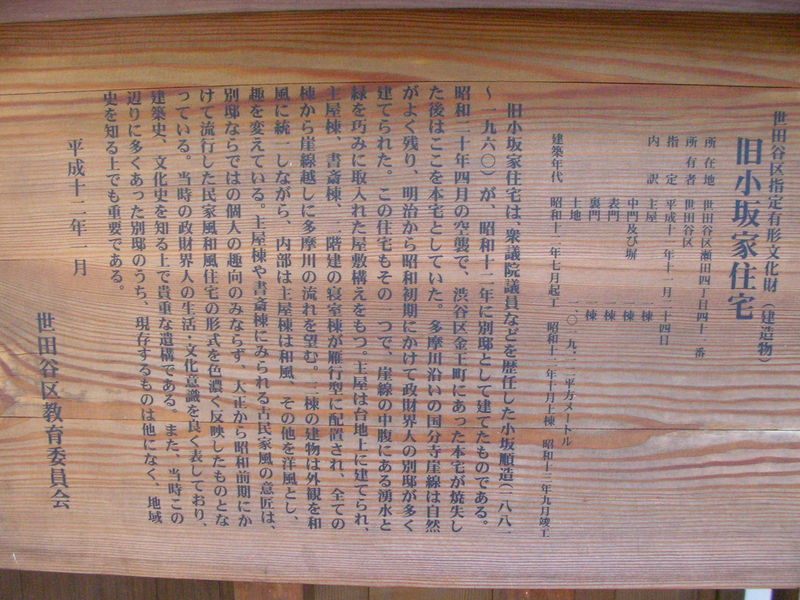 世田谷区指定有形文化財（建造物）
旧小坂家住宅
所在地　世田谷区瀬田四丁目四十一番
所有者　世田谷区
指　定　平成十一年十一月二十四日
内　訳　主屋　一棟
中門及び塀　一棟
表門　一棟
裏門　一棟
土地
平方メートル
建築年代　昭和十二年七月起工　昭和十二年十月上棟　昭和十三年九月竣工
旧小坂家住宅は、衆議院議員などを歴任した小坂順造（一八八一
～一九六〇）が、昭和十二年に別邸として建てたものである。
昭和二十年四月の空襲で、渋谷区金王町にあった本宅が焼失し
た後はここを本宅としていた。多摩川沿いの国分寺崖線は自然
がよく残り、明治から昭和初期にかけて政財界人の別邸が多く
建てられた。この住宅もその一つで、崖線の中腹にある湧水と
緑を巧みに取入れた屋敷構えをもつ。主屋は台地上に建てられ、
主屋棟、書斎棟、二階建の寝室棟が雁行型に配置され、全ての
棟から崖線越しに多摩川の流れを望む。三棟の建物は外観を和
風に統一しながら、内部は主屋棟は和風、その他を洋風とし、
趣を変えている。主屋棟や書斎棟にみられる古民家風の意匠は、
別邸ならではの個人の趣向のみならず、大正から昭和前期にか
けて流行した民家風和風住宅の形式を色濃く反映したものとな
っている。当時の政財界人の生活・文化意識を良く表しており、
建築史、文化史を知る上で貴重な遺構である。また、当時この
辺りに多くあった別邸のうち、現存するものは他になく、地域
史を知る上でも重要である。
平成十二年一月
世田谷区教育委員会